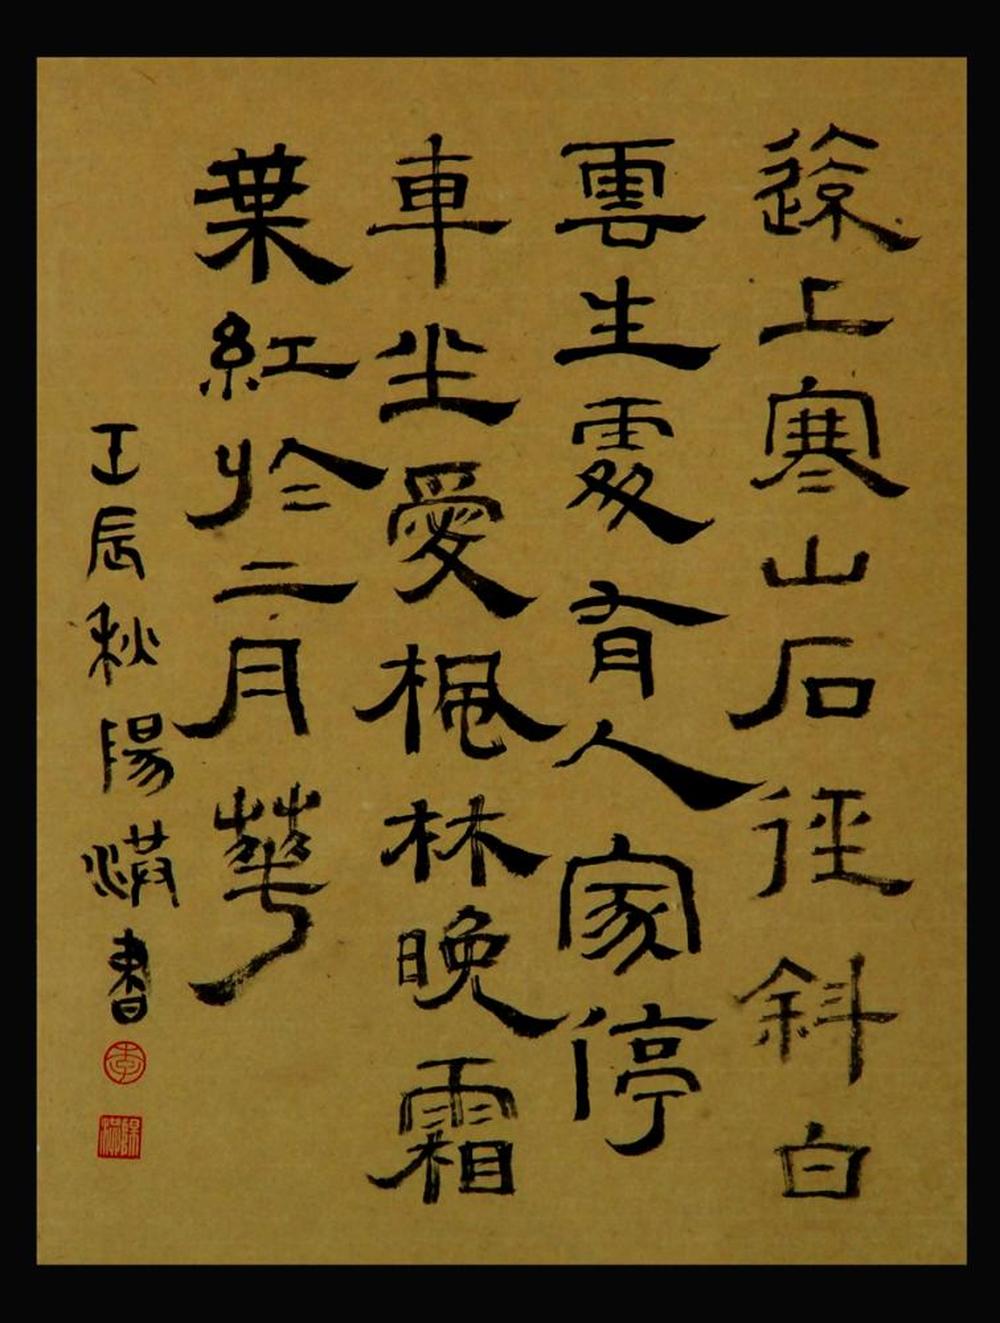 遠上寒山石徑斜白
雲生處有人家停
車坐愛楓林晚霜
葉紅於二月華
壬辰秋陽書
李